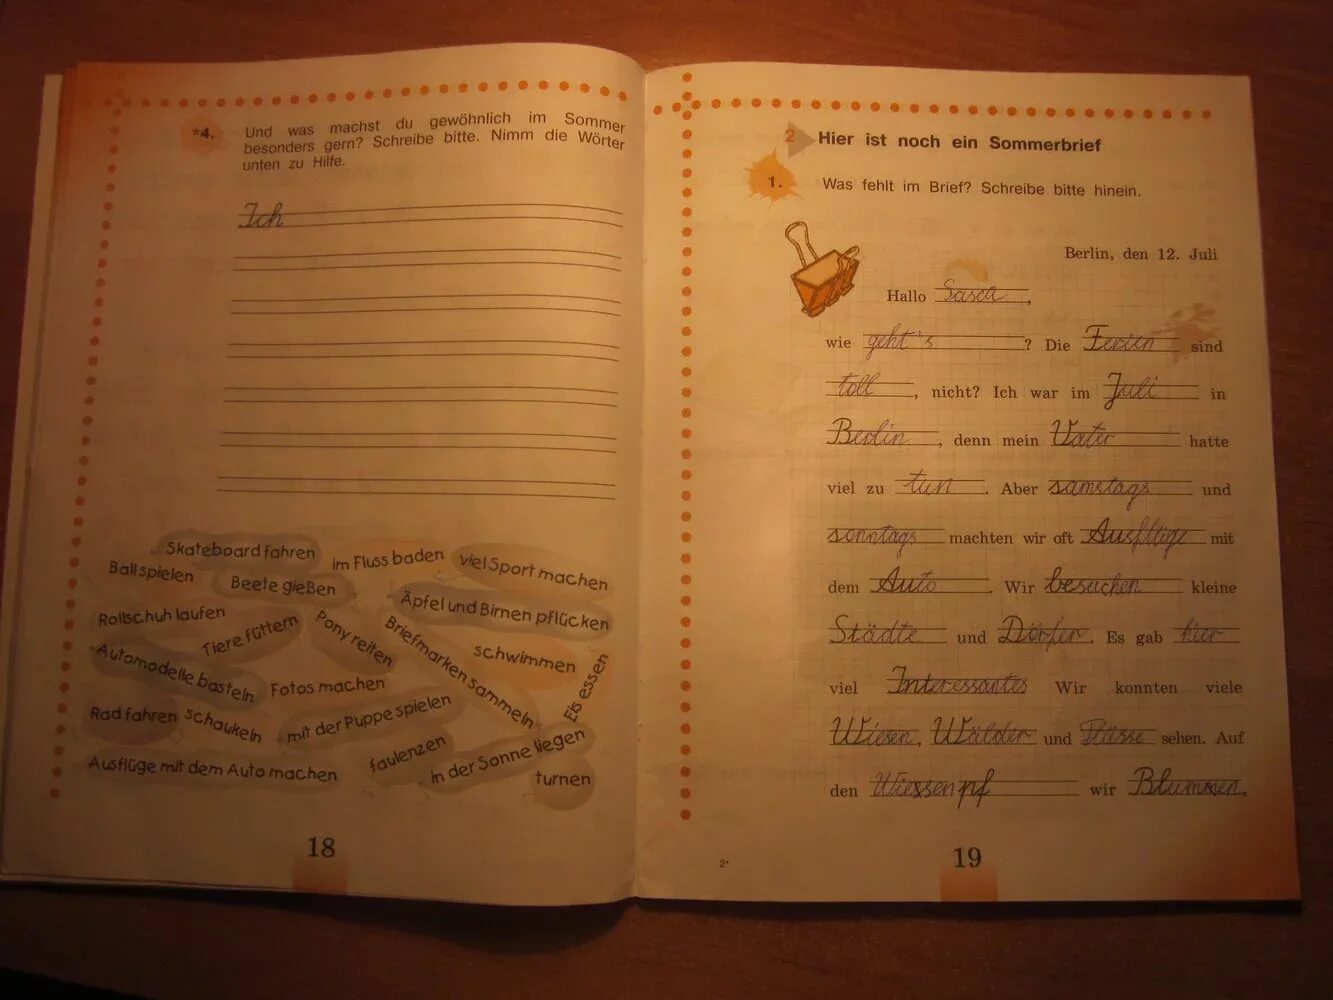 *4. Und was machst du gewöhnlich im Sommer
besonders gern? Schreibe bitte. Nimm die Wörter
unten zu Hilfe.
Ich
Skateboard fahren
im Fluss baden
viel Sport machen
Ball spielen
Beete gießen
Äpfel und Birnen pflücken
Rollschuh laufen
Tiere füttern
Pony reiten
Briefmarken sammeln
schwimmen
Eis essen
Automodelle basteln
Fotos machen
Rad fahren
schaukeln
mit der Puppe spielen
Ausflüge mit dem Auto machen
faulenzen
in der Sonne liegen
turnen
18
2 Hier ist noch ein Sommerbrief
1. Was fehlt im Brief? Schreibe bitte hinein.
Berlin, den 12. Juli
Hallo Sasca,
wie geht's ? Die Ferien sind
toll, nicht? Ich war im Juli in
Berlin, denn mein Vater hatte
viel zu tun. Aber samstags und
sonntags machten wir oft Ausflüge mit
dem Auto. Wir besuchen kleine
Städte und Dörfer. Es gab hier
viel Interessantes Wir konnten viele
Wiesen, Wälder und Flüsse sehen. Auf
den Wiessen pf wir Blummen.
2*
19